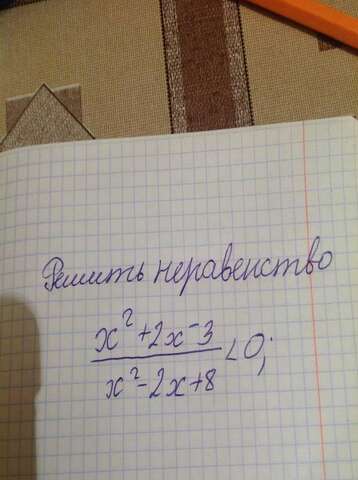 Решить неравенство
x²+2x-3
x²-2x+8 <0;